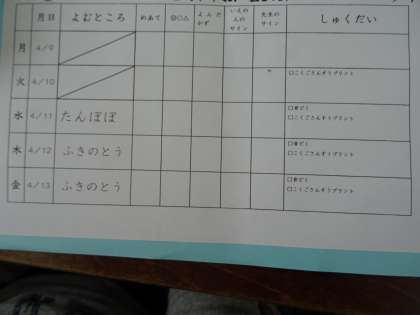 月日 よむところ めあて ◎○△ よんだかず いえの人のサイン 先生のサイン しゅくだい
月 4/9
火 4/10 □こくごさんすうプリント
水 4/11 たんぽぽ □音どく
□こくごさんすうプリント
木 4/12 ふきのとう □音どく
□こくごさんすうプリント
金 4/13 ふきのとう □音どく
□こくごさんすうプリント